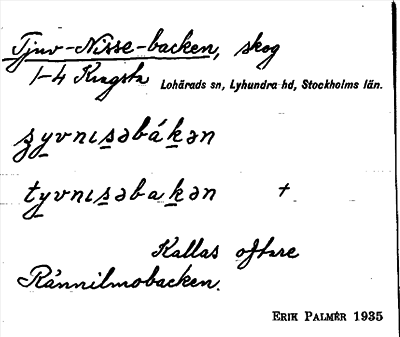 Tjuv-Nisse-backen, skog
1-4 Kragsta Lohärads sn, Lyhundra hd, Stockholms län.
ʂyvnɩsəbákən
tyvnɩsəbakən +
Kallas oftare
Rännilmobacken.
ERIK PALMÉR 1935